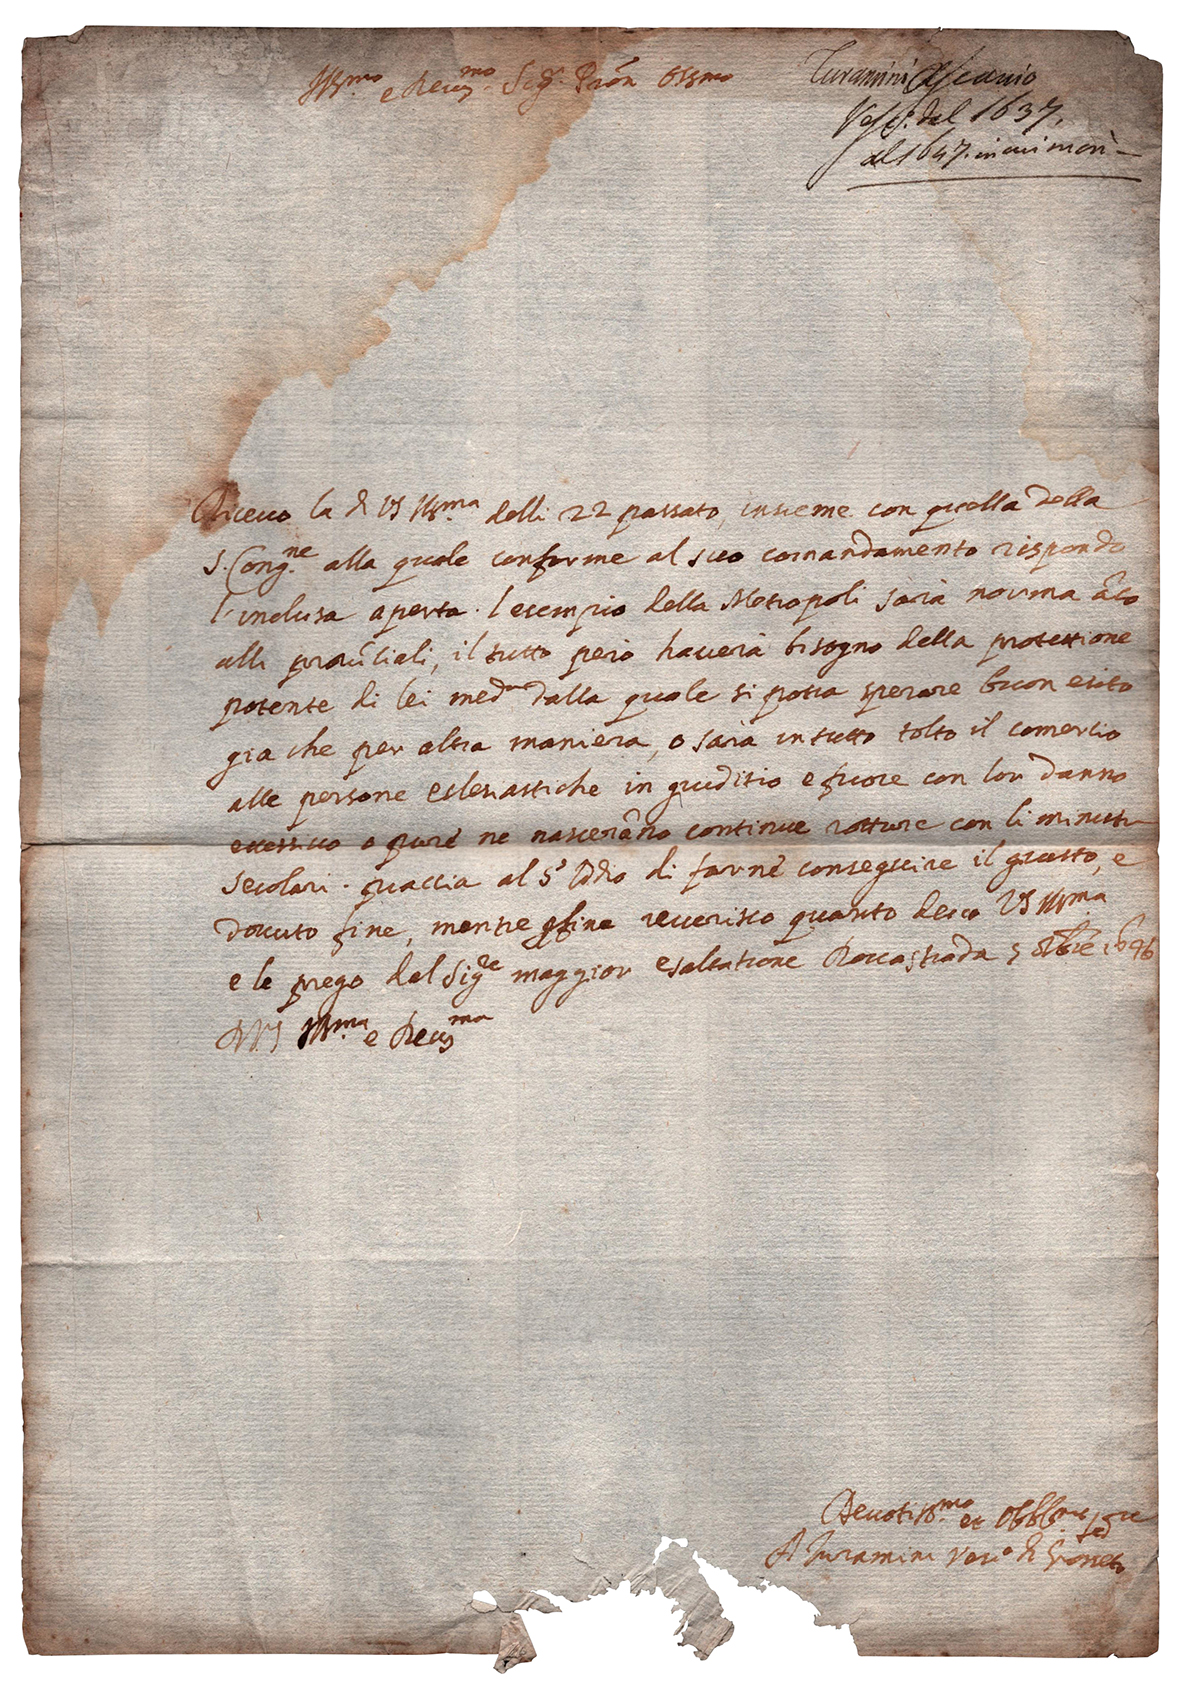 Ill.mo e Rev.mo Sig.r Pron Oss.mo
Turamini Ascanio
Vesc. dal 1637.
al 1647. in cui morì
Ricevo la di VS Ill.ma delli 22 passato, insieme con quella della
S. Cong.ne alla quale conforme al suo comandamento rispondo
l'inclusa aperta. l'esempio della Metropoli sarà norma
alli provinciali, il tutto però haverà bisogno della protettione
potente di lei med.a dalla quale si possa sperare buon esito
gia che per altra maniera, o sarà in tutto tolto il comercio
alle persone eclesiastiche in giuditio e fuore con lor danno
eccessivo o pure ne nasceranno continue rotture con li ministri
secolari. piaccia al S.r Iddio di farne conseguire il giusto, e
dovuto fine, mentre per fine reverisco quanto devo VS Ill.ma
e le prego dal Sig.re maggior esaltatione Roccastrada 5 1646
D VS Ill.ma e Rev.ma
Devotiss.mo et Obblig.mo Ser.re
A Turamini Vesc.o di Grosseto